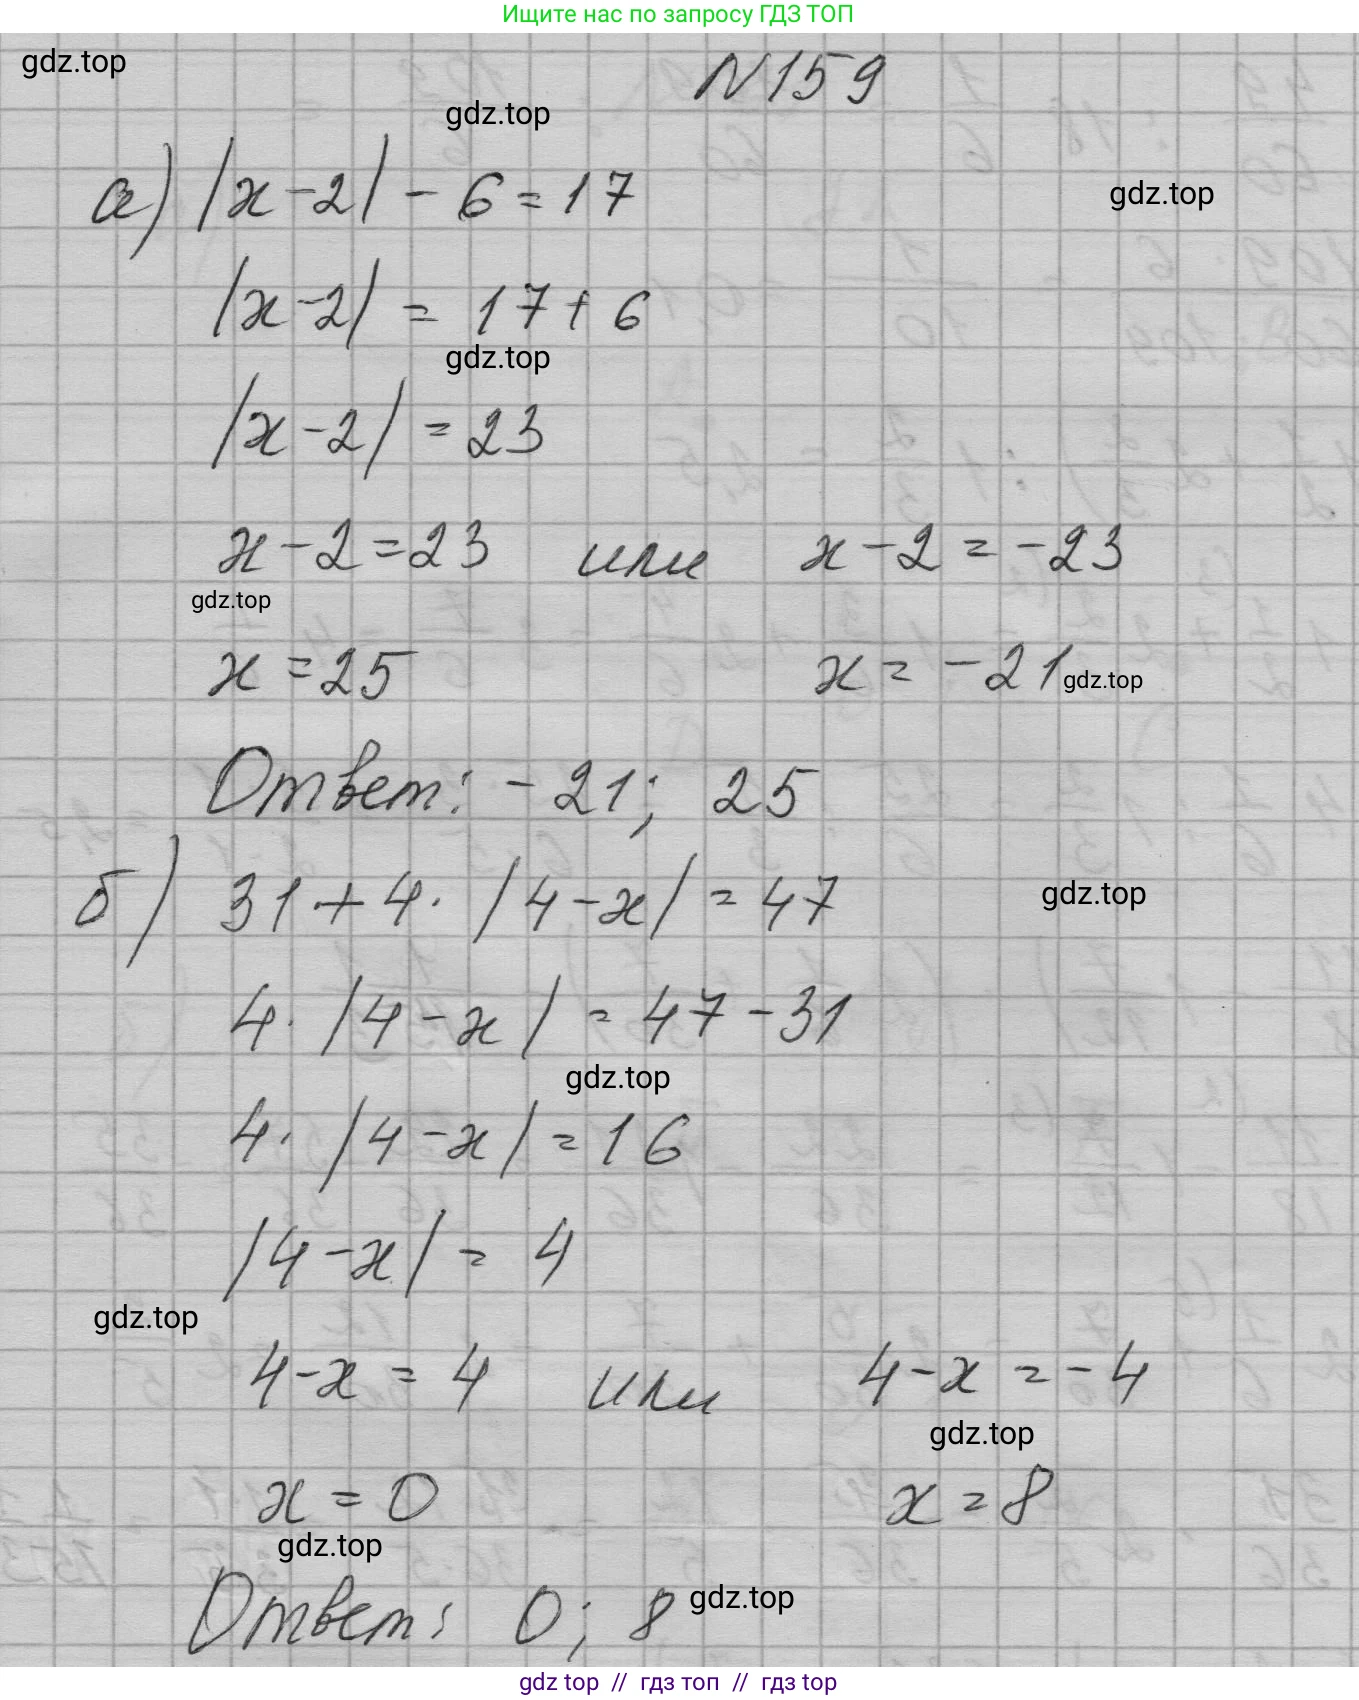 Ищите нас по запросу ГДЗ ТОП
gdz.top
N 159
gdz.top
а) |x-2| - 6 = 17
gdz.top
|x-2| = 17 + 6
gdz.top
|x-2| = 23
x-2=23 или x-2 = -23
gdz.top
x = 25 x = -21
gdz.top
Ответ: -21; 25
б) 31 + 4 · |4-x| = 47
gdz.top
4 · |4-x| = 47-31
gdz.top
4 · |4-x| = 16
|4-x| = 4
gdz.top
4-x = 4 или 4-x = -4
gdz.top
x = 0 x = 8
gdz.top
Ответ: 0; 8
gdz.top
gdz top // гдз топ // gdz top